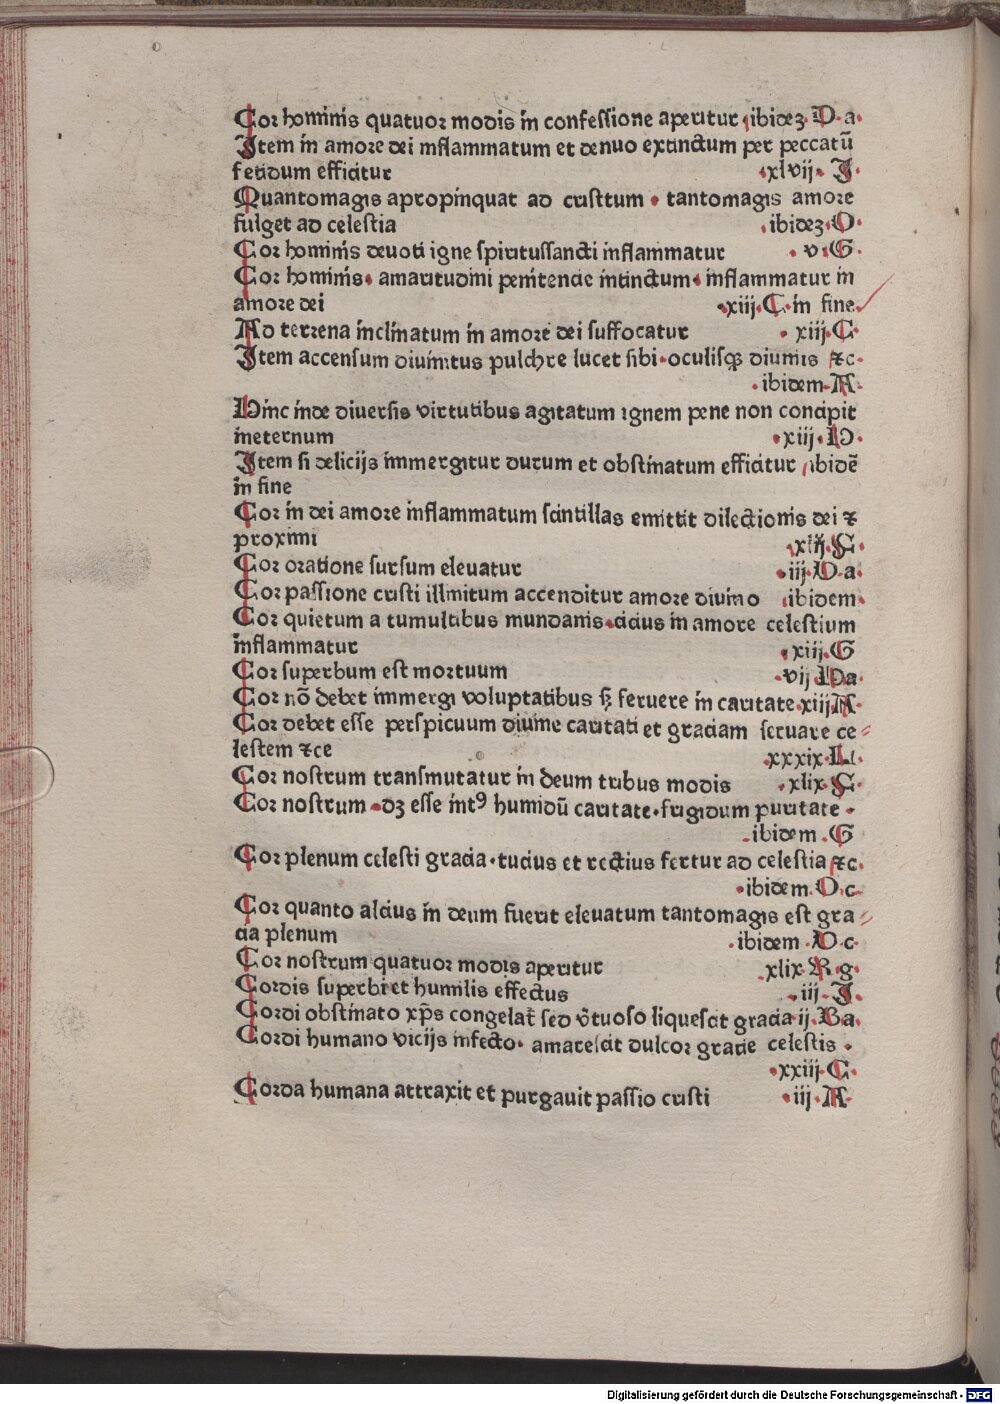 Cor hominis quatuor modis in confessione aperitur ibidez D a
Item in amore dei inflammatum et denuo extinctum per peccatū
fetidum efficitur xlvij I
Quantomagis apropinquat ad cristum tantomagis amore
fulget ad celestia ibidez O
Cor hominis deuoti igne spiritussancti inflammatur v G
Cor hominis amaritudini penitencie intinctum inflammatur in
amore dei xiij C in fine
Ad terrena inclinatum in amore dei suffocatur xiij C
Item accensum diuinitus pulchre lucet sibi oculisqꝫ diuinis ⁊c
ibidem A
Hinc inde diuersis virtutibus agitatum ignem pene non concipit
ineternum xiij D
Item si delicijs immergitur durum et obstinatum efficitur ibidē
in fine
Cor in dei amore inflammatum scintillas emittit dilectionis dei ⁊
proximi
Cor oratione sursum eleuatur iij D a
Cor passione cristi illinitum accenditur amore diuino ibidem
Cor quietum a tumultibus mundanis cicius in amore celestium
inflammatur xiij G
Cor superbum est mortuum vij
Cor nō debet immergi voluptatibus sꝫ feruere in caritate xiij A
Cor debet esse perspicuum diuine caritati et graciam seruare ce⸗
lestem ⁊ce xxxix L
Cor nostrum transmutatur in deum tribus modis xlix C
Cor nostrum dꝫ esse intꝰ humidū caritate frigidum puritate
ibidem G
Cor plenum celesti gracia tucius et rectius fertur ad celestia ⁊c
ibidem O c
Cor quanto alcius in deum fuerit eleuatum tantomagis est gra⸗
cia plenum ibidem D c
Cor nostrum quatuor modis aperitur xlix R g
Cordis superbi et humilis effectus iij I
Cordi obstinato xp̄s congelat̄ sed v̄tuoso liquescit gracia ij B a
Cordi humano vicijs infecto amarescit dulcor gratie celestis
xxiij C
Corda humana attraxit et purgauit passio cristi iij A
Digitalisierung gefördert durch die Deutsche Forschungsgemeinschaft - DFG